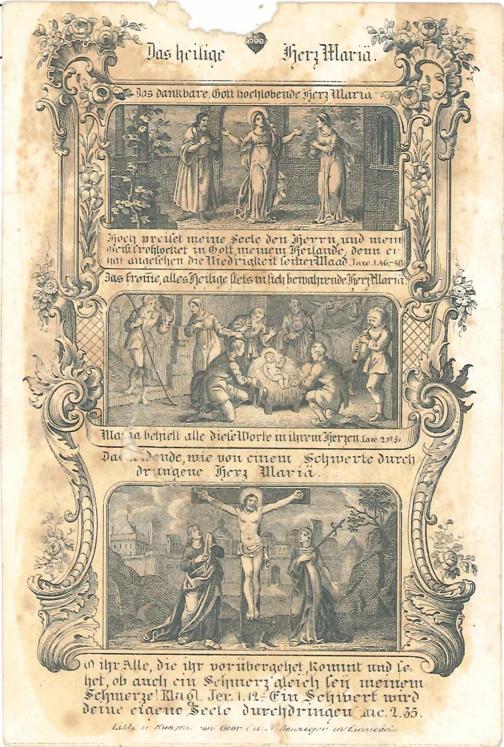 Das heilige Herz Mariä.
Das dankbare, Gott hochlobende Herz Mariä.
Hoch preiset meine Seele den Herrn, und mein
Geist frohlocket in Gott, meinem Heilande, denn er
hat angesehen die Niedrigkeit seiner Maad. Luc. 1.46.-48.
Das fromme, alles Heilige stets in sich bewahrende Herz Mariä
Maria behielt alle diese Worte in ihrem Herzen. Luc. 2. 51
wie von einem Schwerte durch
drungene Herz Mariä.
O ihr Alle, die ihr vorübergehet, kommt und se-
het, ob auch ein Schmerz gleich seÿ meinem
Schmerze! Klagl. Jer. 1.12.- Ein Schwert wird
deine eigene Seele durchdringen. Luc. 2. 35.
Lith. u. von Gebr. C. u. N. Benziger in Einsiedeln